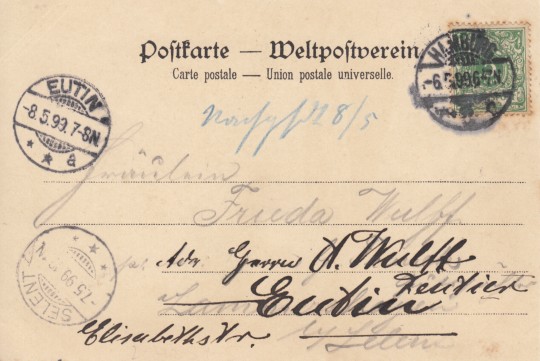 Postkarte — Weltpostverein
Carte postale — Union postale universelle.
HAMBURG
-6.5.99.6-7N
EUTIN
-8.5.99.7-8N
* * a
8/5
Fräulein
Frieda Wulff
SELENT
-7.5.99
Adr. Herrn A. Wulff
Rentier
Eutin
Elisabethstr.